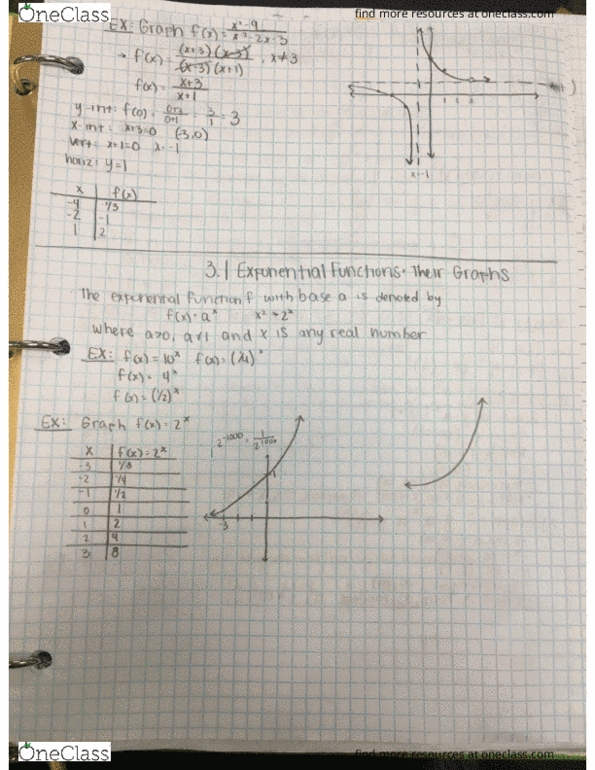 OneClass
find more resources at oneclass.com
EX: Graph f(x) = x²-9 / x²-2x-3
→ f(x) = (x+3)(x-3) / (x-3)(x+1), x≠3
f(x) = x+3 / x+1
y-int: f(0) = 0+3 / 0+1 = 3/1 = 3
x-int: x+3=0 (-3,0)
vert: x+1=0 x=-1
horiz: y=1
x f(x)
-4 1/3
-2 -1
1 2
1 2 3
x=-1
3.1 Exponential Functions & Their Graphs
The exponential function f with base a is denoted by
f(x)=a^x x² → 2^x
where a>0, a≠1 and x is any real number
EX: f(x) = 10^x f(x) = (1/4)^x
f(x) = 4^x
f(x) = (1/2)^x
EX: Graph f(x) = 2^x
x f(x)=2^x
-3 1/8
-2 1/4
-1 1/2
0 1
1 2
2 4
3 8
2^-1000 = 1/2^1000
1
-3
OneClass
find more resources at oneclass.com